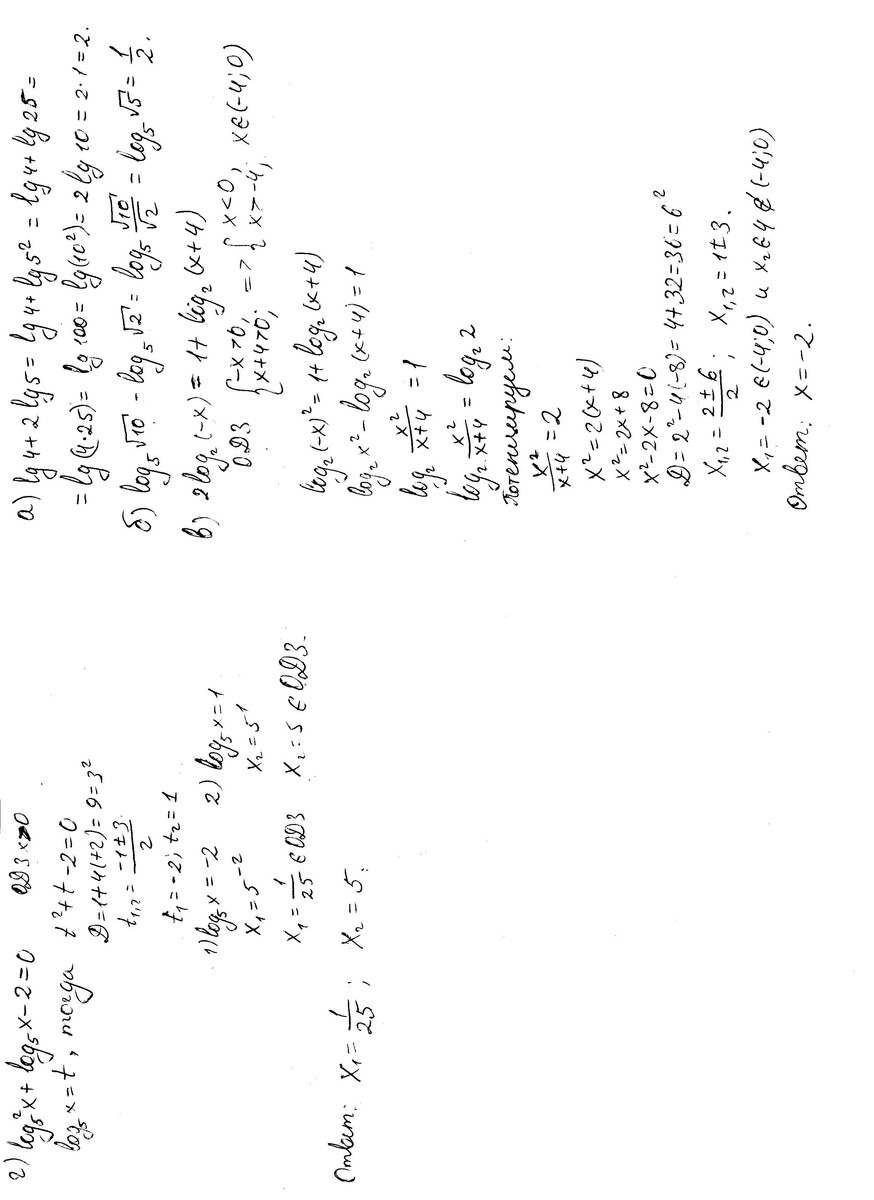 а) lg 4 + 2 lg 5 = lg 4 + lg 5² = lg 4 + lg 25 =
= lg (4·25) = lg 100 = lg (10²) = 2 lg 10 = 2·1 = 2.
б) log₅ √10 - log₅ √2 = log₅ √10/√2 = log₅ √5 = 1/2.
в) 2 log₂ (-x) = 1 + log₂ (x+4)
ОДЗ { -x>0, x+4>0; => { x<0, x>-4; x∈(-4;0)
log₂ (-x)² = 1 + log₂ (x+4)
log₂ x² - log₂ (x+4) = 1
log₂ x²/(x+4) = 1
log₂ x²/(x+4) = log₂ 2
Потенцируем:
x²/(x+4) = 2
x² = 2(x+4)
x² = 2x+8
x² - 2x - 8 = 0
D = 2² - 4(-8) = 4+32 = 36 = 6²
x₁,₂ = (2±6)/2 ; x₁,₂ = 1±3.
x₁ = -2 ∈ (-4;0) и x₂ ∈ 4 ∉ (-4;0)
Ответ: x = -2.
г) log₅² x + log₅ x - 2 = 0 ОДЗ x>0
log₅ x = t, тогда t² + t - 2 = 0
D = 1+4(+2) = 9 = 3²
t₁,₂ = (-1±3)/2
t₁ = -2; t₂ = 1
1) log₅ x = -2 2) log₅ x = 1
x₁ = 5⁻² x₂ = 5¹
x₁ = 1/25 ∈ ОДЗ x₂ = 5 ∈ ОДЗ.
Ответ: x₁ = 1/25 ; x₂ = 5.